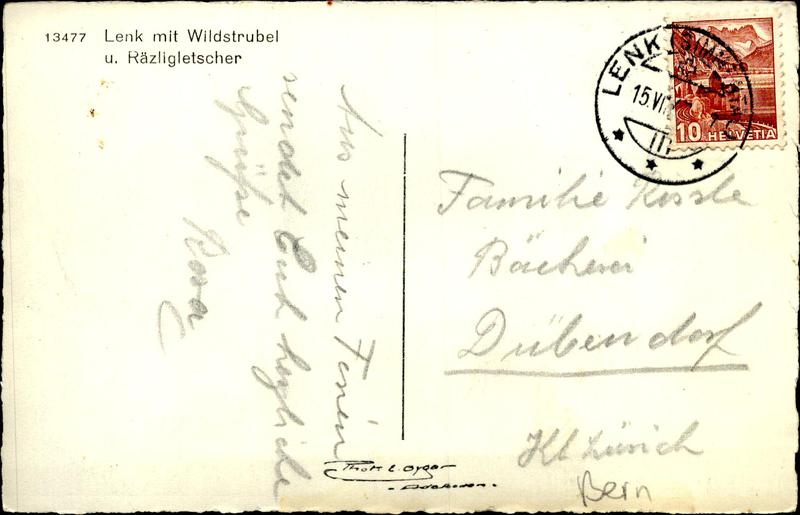 13477 Lenk mit Wildstrubel
u. Räzligletscher
Aus meinen Ferien
sendet Euch herzliche
Grüße
Rosa
LENK (SIMM
15.VI
10 HELVETIA
Familie Kessle
Bäckerei
Dübendorf
Kt Zürich
Bern
Phot. E. Gyger
- Adelboden -